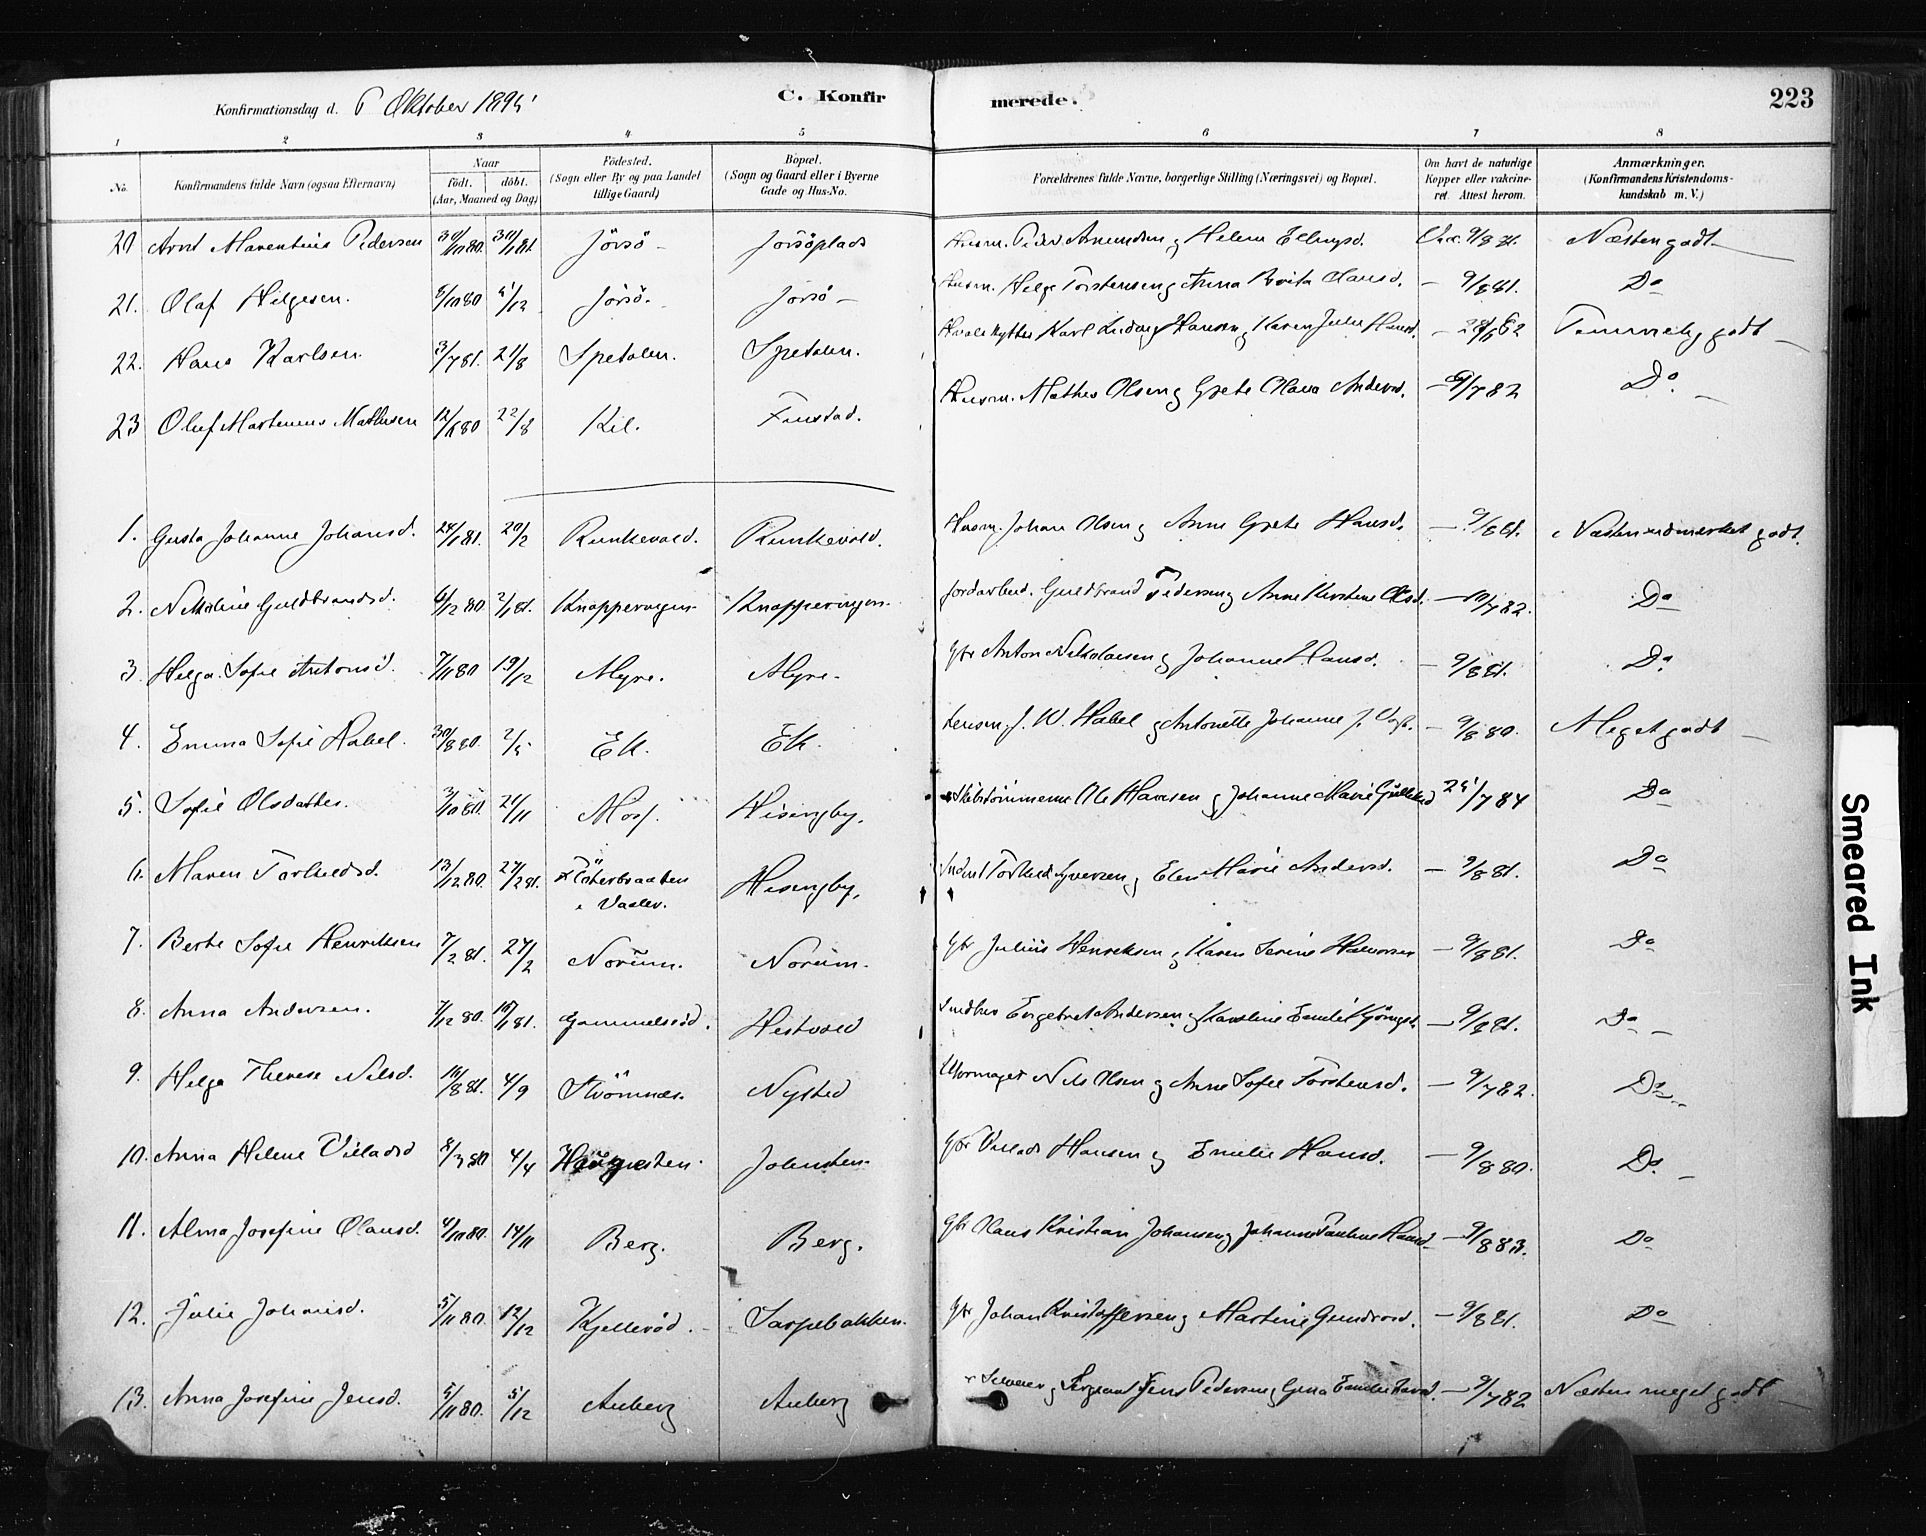 Konfirmationsdag d. 6 Oktober 1895
C. Konfir merede. 223
1 2 3 4 5 6 7 8
No. Konfirmandens fulde Navn (ogsaa Efternavn) Naar født. døbt. (Aar, Maaned og Dag) Fødested. (Sogn eller By og paa Landet tillige Gaard) Bopæl. (Sogn og Gaard eller i Byerne Gade og Hus-No. Forældrenes fulde Navne, borgerlige Stilling (Næringsvei) og Bopæl. Om havt de naturlige Kopper eller vakcineret. Attest herom. Anmærkninger. (Konfirmandens Kristendomskundskab m. V.)
20 Arnt Marentius Pedersen 30/11 80 30/1 81. Jörsö Jörsöplads Husm. Peder Amundsen og Helene Ellingsd. Vac. 9/8 81. Næsten godt
21. Olaf Helgesen. 5/10 80 5/12 Jörsö. Jörsö Husm. Helge Torstensen og Anna Hansd. 9/8 81. Do
22. Hans Karlsen. 3/7 81. 21/8 Spetalen. Spetalen. Karl Hansen og Karen Julie Hansd. Temmelig godt
23 Oluf Martinius Mathisen 12/6 80 22/8 Kil. Funstad. Husm. Mathes Olsen og Grete Olava Andersd. 9/7 82 Do
1. Gusta Johanne Johansd. 24/1 81. 20/2 Runkevold. Runkevold. Husm. Johan Olsen og Anne Grete Hansd. 9/8 81. Næsten udmærket godt.
2. Nikoline Guldbrandsd. 6/12 80 2/1 81. Knappervigen. Knappervigen. Jordarbeid. Guldbrand Pedersen og Anne Kirstine Olsd. 10/7 82. Do
3. Helga Sofie Antonsd. 7/11 80 19/12 Myre. Myre. Gbr Anton Nikolaisen og Johanne Hansd. 9/8 81. Do
4. Emma Sofie Habel. 30/3 80. 2/5 Ek. Ek. Lensm. J. W. Habel og Antonette Johanne f. Vogt. 9/8 80. Meget godt
5. Sofie Olsdatter. 3/10 80. 21/11 Moss. Hisingby. Skibstömmerm. Ole Hansen og Johanne Marie 25/7 84 Do
6. Maren Torkildsd. 13/12 80. 27/2 81. Flöterbraaten i Vaaler. Hisingby. Inderst Torkild Syversen og Elen Marie Andersd. 9/8 81. Do
7. Berte Sofie Henriksen 7/2 81. 27/2 Norum. Norum. Gbr Julius Henriksen og Karen Serine Halvorsen 9/8 81. Do
8. Anna Andersen. 7/12 80. 16/1 81. Gammelsröd. Hestvold Engebret Andersen og Karoline Emilie 9/8 81. Do
9. Helga Therese Nilsd. 10/8 81. 4/9 Strömnæs. Nysted Uhrmager Nils Olsen og Anne Sofie Torstensd. 9/7 82. Do
10. Anna Helene Villadsd 8/3 80 4/4 Haugesten. Johnsten. Gbr Villads Hansen og Emilie Hansd. 9/8 80. Do.
11. Alma Josefine Olausd. 4/10 80. 14/11 Berg. Berg. Gbr Olaus Kristian Johansen og Johanne Pauline Hansd. 9/8 83. Do
12. Julie Johansd. 5/11 80. 12/12 Kjellröd. Sarpebakken. Gbr Johan Kristoffersen og Martine Gundrosd. 9/8 81. Do
13. Anna Josefine Jensd. 5/11 80. 5/12 Auberg Auberg Selveier og Sergeant Jens Pedersen og Gina Emilie 9/7 82 Næsten meget godt
Smeared Ink